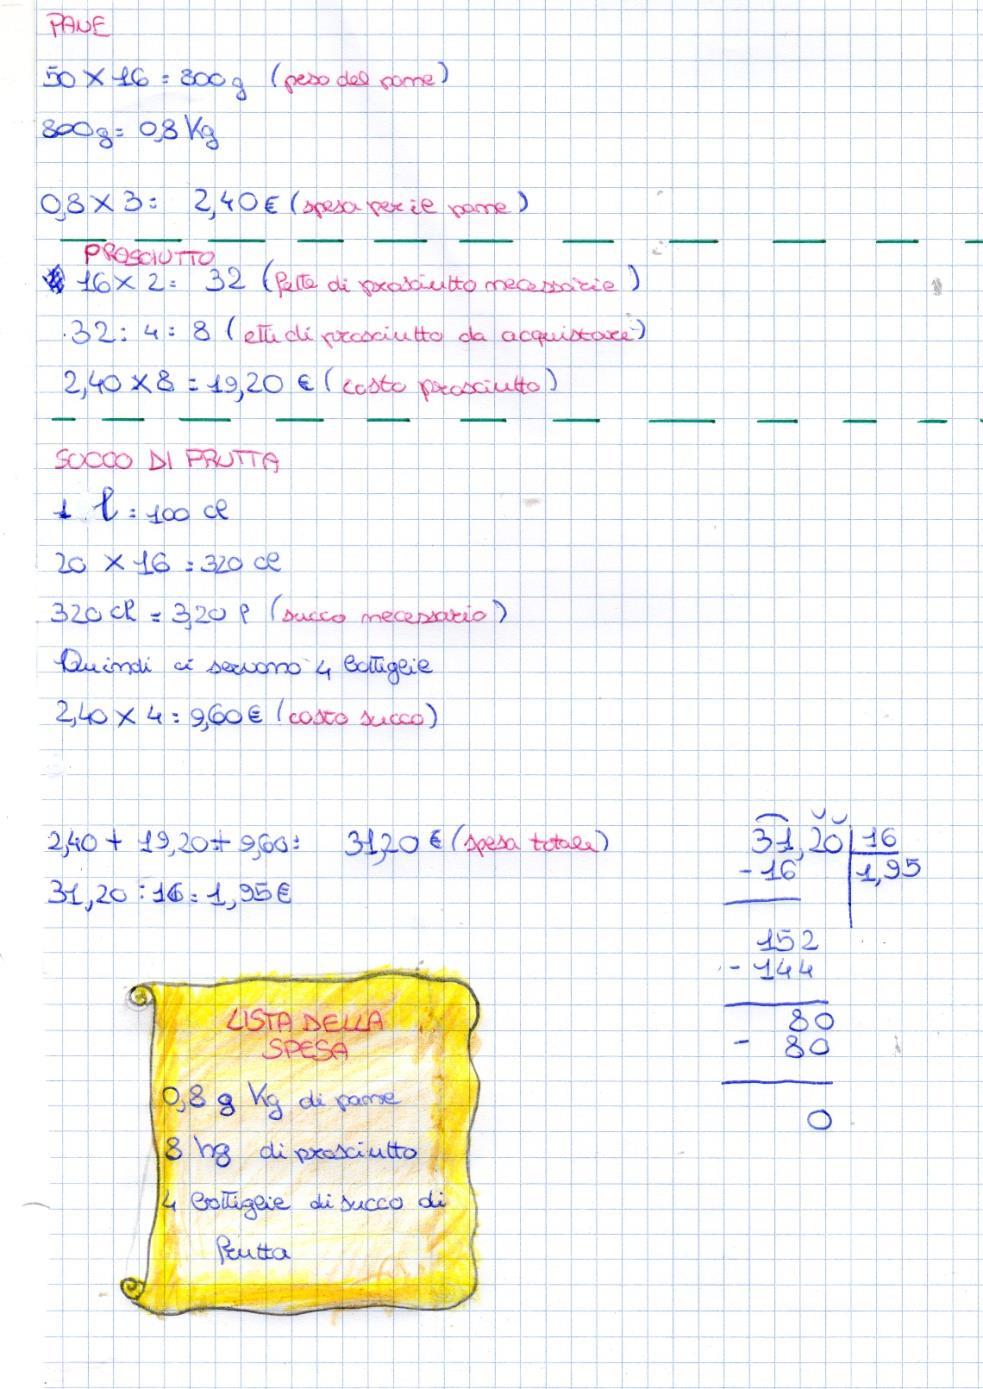 PANE
50 X 16 = 800 g (peso del pane)
800 g = 0,8 Kg
0,8 X 3 = 2,40 € (spesa per il pane)
PROSCIUTTO
16 X 2 = 32 (fette di prosciutto necessarie)
32 : 4 = 8 (etti di prosciutto da acquistare)
2,40 X 8 = 19,20 € (costo prosciutto)
SUCCO DI FRUTTA
1 l = 100 cl
20 X 16 = 320 cl
320 cl = 3,20 l (succo necessario)
Quindi ci servono 4 bottiglie
2,40 X 4 = 9,60 € (costo succo)
2,40 + 19,20 + 9,60 = 31,20 € (spesa totale)
31,20 : 16 = 1,95 €
31,20 | 16
- 16 1,95
152
- 144
80
- 80
0
LISTA DELLA
SPESA
0,8 g Kg di pane
8 hg di prosciutto
4 bottiglie di succo di
frutta